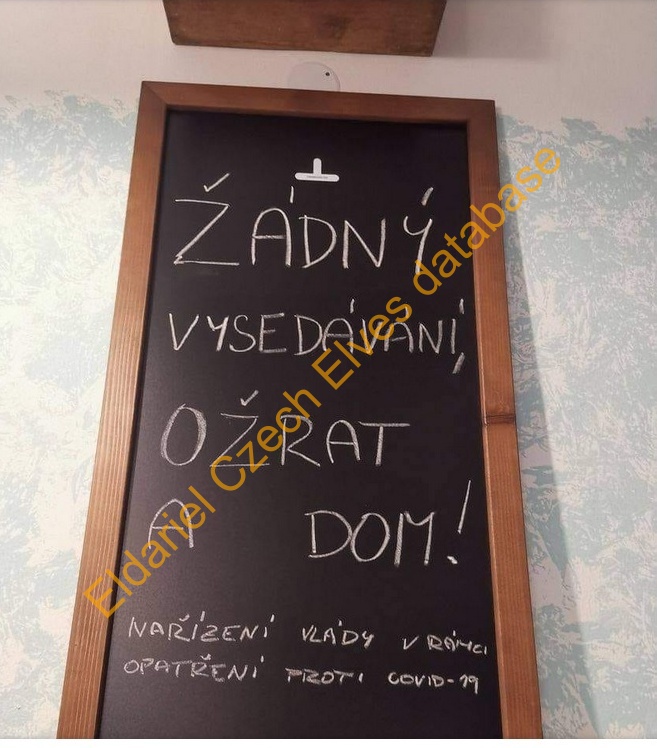 ŽÁDNÝ
VYSEDÁVÁNÍ,
OŽRAT
A DOM!
NAŘÍZENÍ VLÁDY V RÁMCI
OPATŘENÍ PROTI COVID-19
Eldariel Czech Elves database